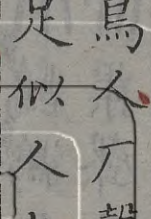 鳥人厂
足似人